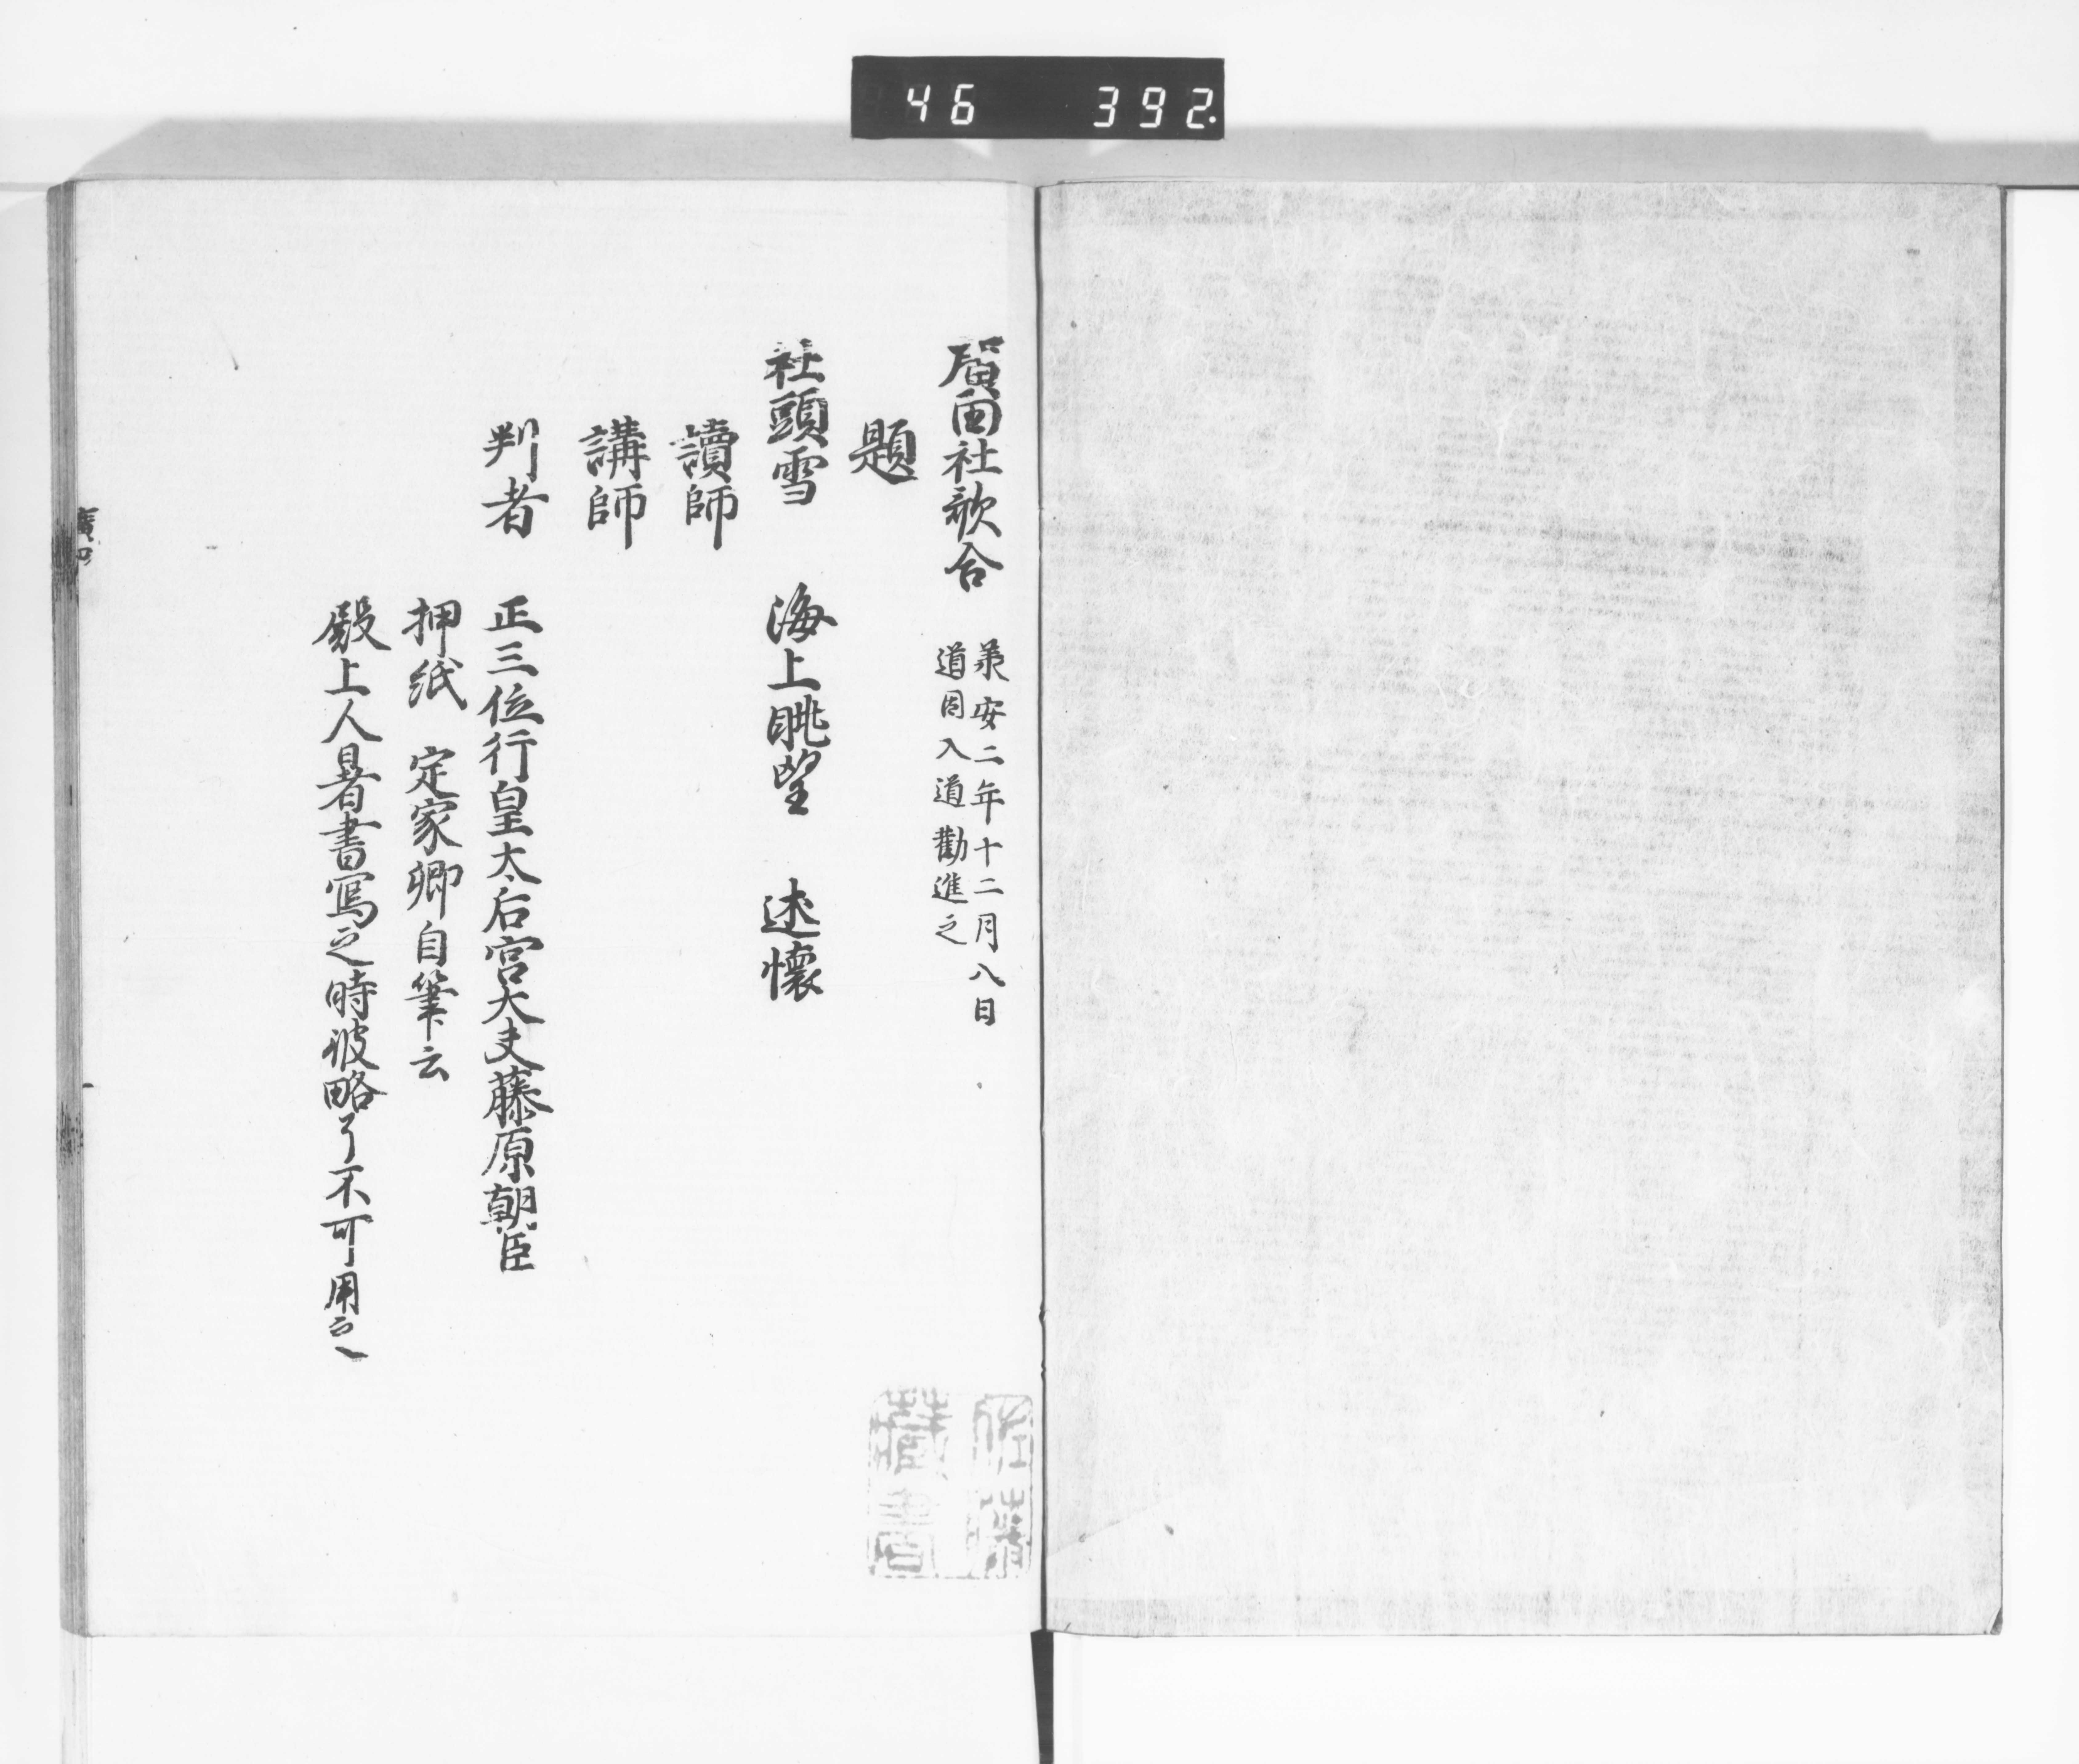 46 392.
廣田社歌合
承安二年十二月八日
道因入道勸進之
題
社頭雪 海上眺望 述懷
讀師
講師
判者 正三位行皇太后宮大夫藤原朝臣
押紙 定家卿自筆云
殿上人暑書寫之時被略了不可用之
佐藤
藏書